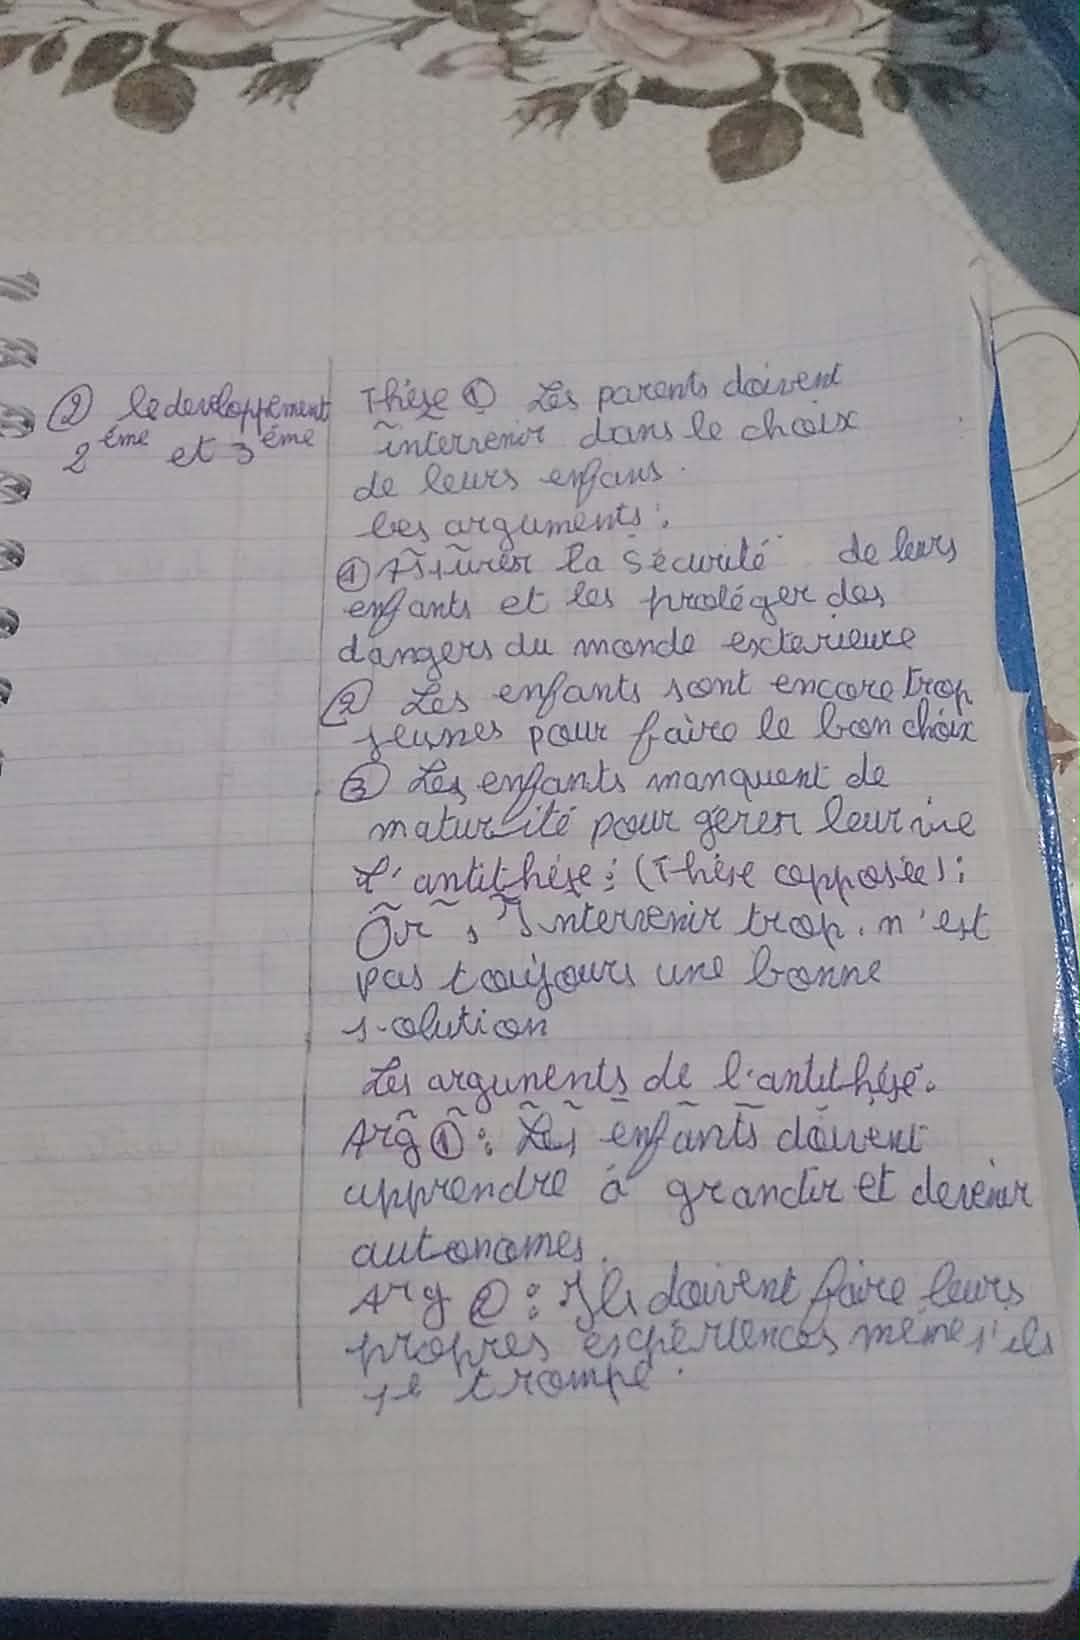 ② le developpement
2 éme et 3 éme
Thèse ① Les parents doivent
intervenir dans le choix
de leurs enfans.
Les arguments :
① Assurer la sécurité de leurs
enfants et les protéger des
dangers du monde exterieure
② Les enfants sont encore trop
jeunes pour faire le bon choix
③ Les enfants manquent de
maturité pour gerer leur vie
L'antithèse : (Thèse opposée) :
Or, Intervenir trop, n'est
pas toujours une bonne
solution
Les arguments de l'antithèse.
Arg ① : Les enfants doivent
apprendre à grandir et devenir
autonomes.
Arg ② : Ils doivent faire leurs
propres expériences même s'ils
se trompe.